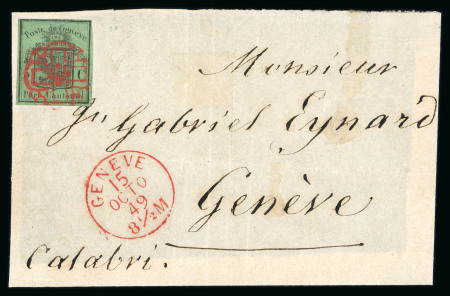 Poste de Genève
Port Cantonal
Monsieur
Gabriel Eynard
Genève
GENEVE
15
OCTO
49
8½M
Calabri.